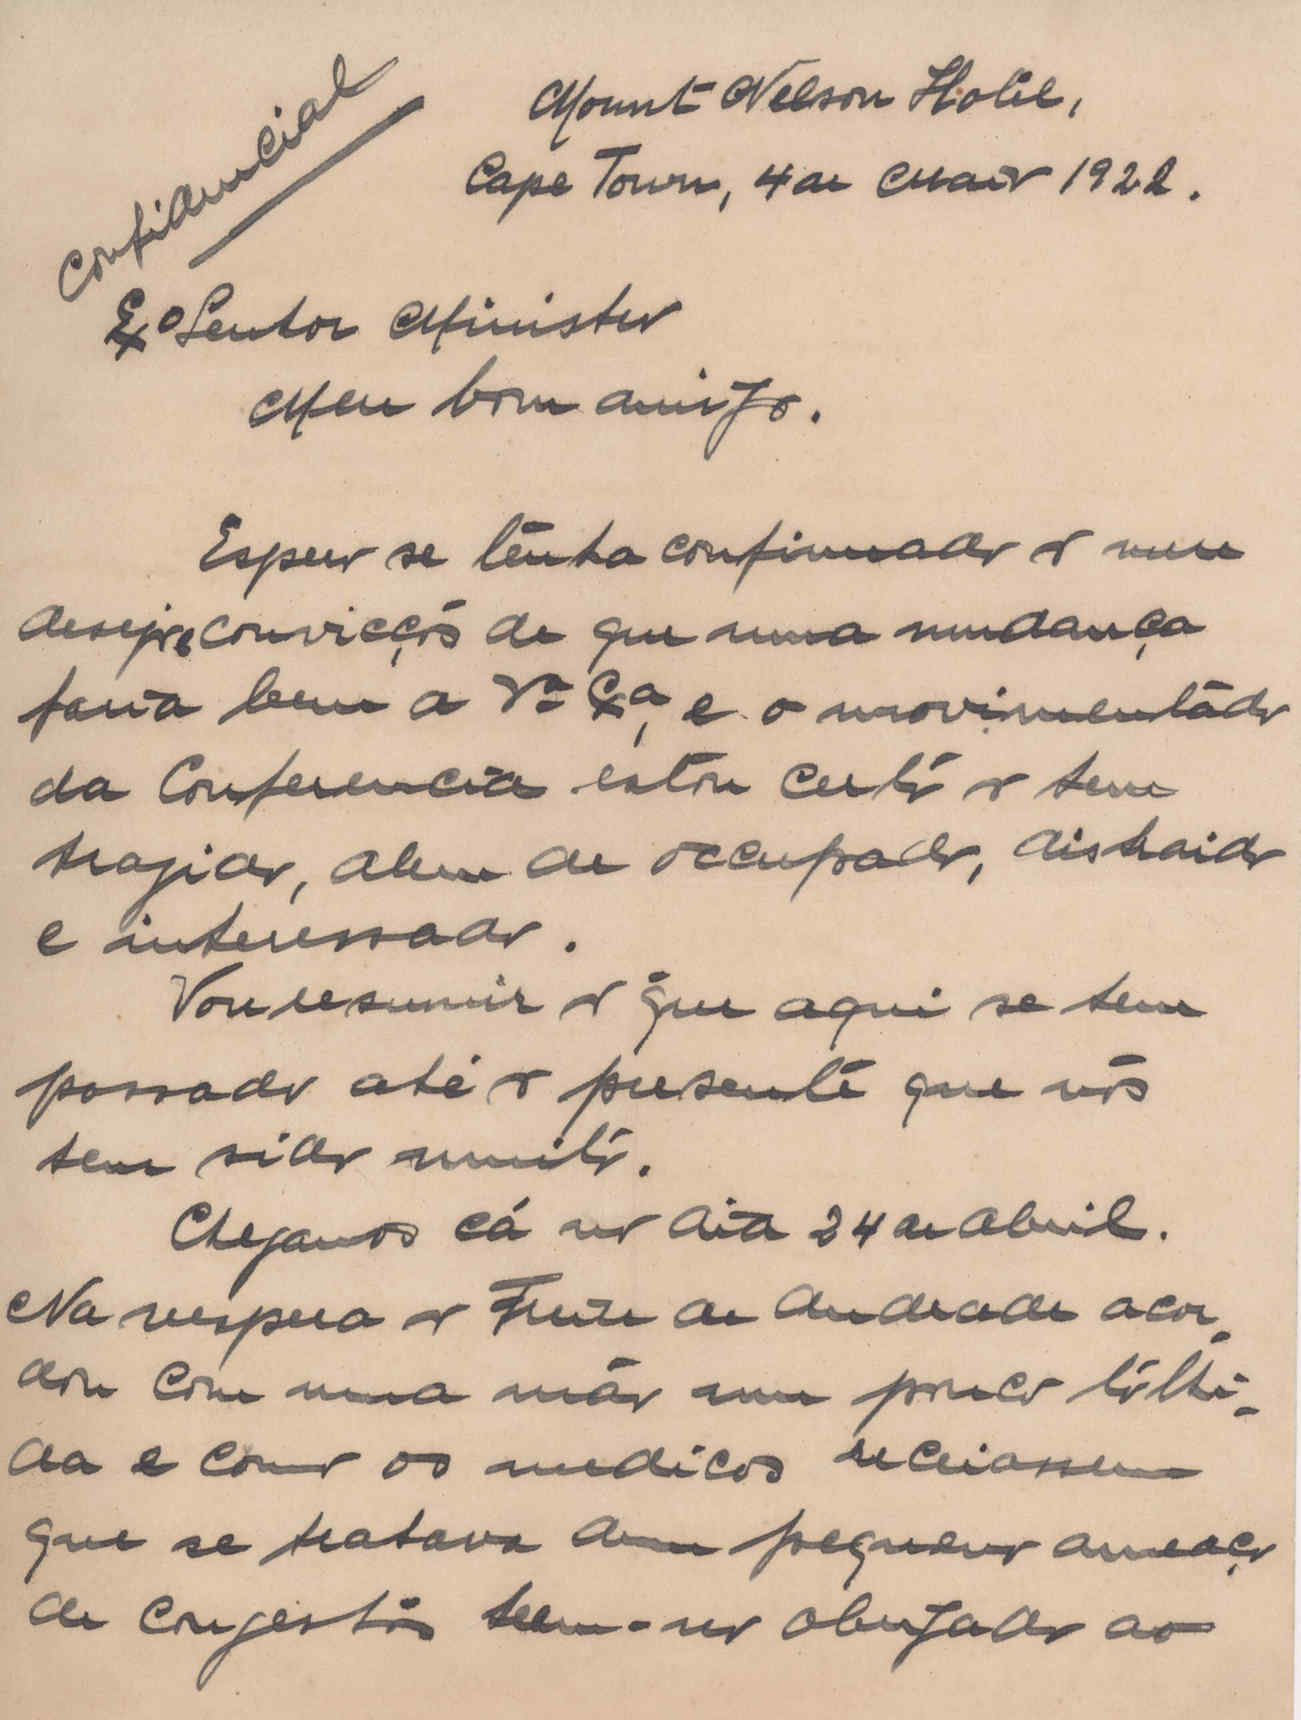 Confidencial
Mount Nelson Hotel,
Cape Town, 4 de Maio 1922.
Exo Senhor Ministro
Meu bom amigo.
Espero se tenha confirmado o meu
desejo e convicção de que uma mudança
faria bem a Va Exa, e o movimentado
da Conferencia estou certo o tem
trazido, alem de occupado, distraido
e interessado.
Vou resumir o que aqui se tem
passado até o presente que não
tem sido muito.
Chegamos cá no dia 24 de Abril.
Na vespera o Freire de Andrade acor-
dou com uma mão um pouco tolhi-
da e como os medicos receiassem
que se tratava dum pequeno ameaço
de congestão teem-no obrigado ao